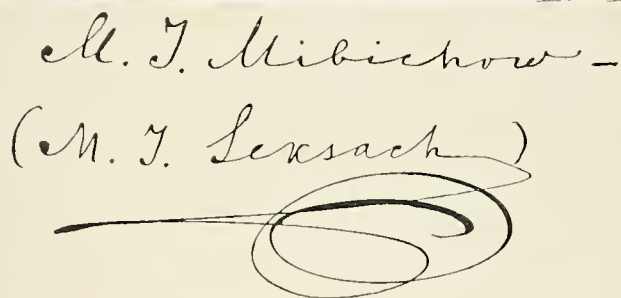 M. J. Mibichow -
(M. J. Lexsach)